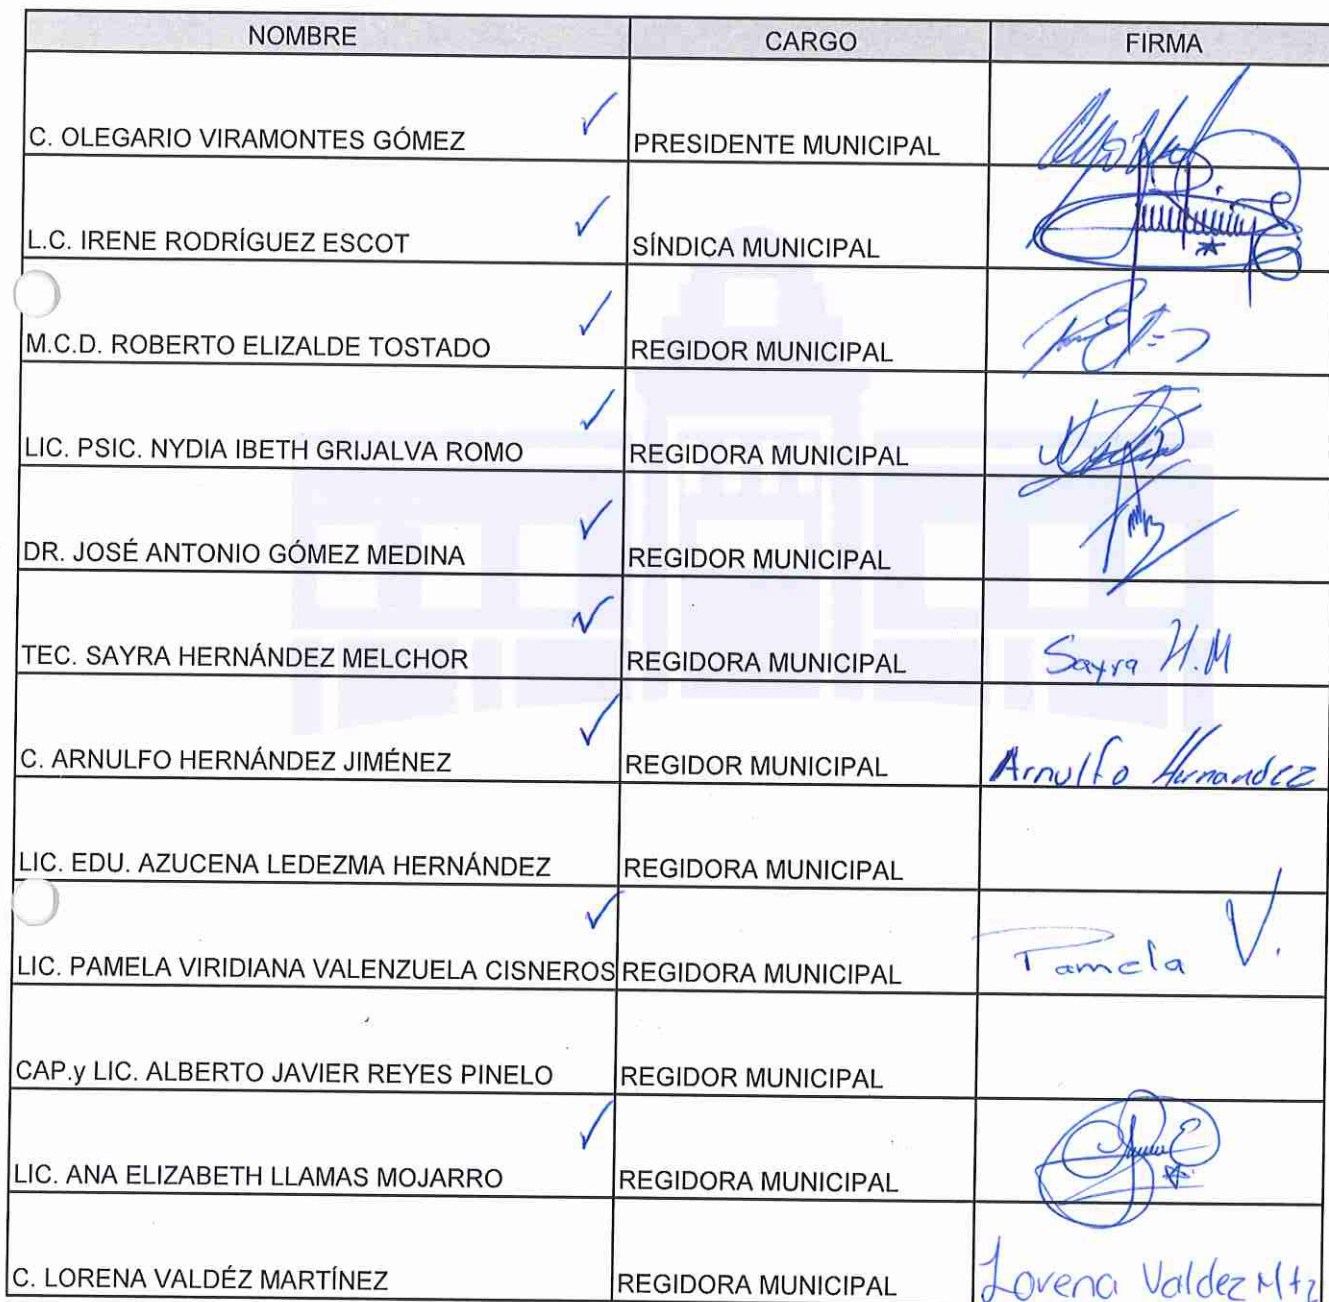 NOMBRE CARGO FIRMA
C. OLEGARIO VIRAMONTES GÓMEZ ✓ PRESIDENTE MUNICIPAL
L.C. IRENE RODRÍGUEZ ESCOT ✓ SÍNDICA MUNICIPAL
M.C.D. ROBERTO ELIZALDE TOSTADO ✓ REGIDOR MUNICIPAL
LIC. PSIC. NYDIA IBETH GRIJALVA ROMO ✓ REGIDORA MUNICIPAL
DR. JOSÉ ANTONIO GÓMEZ MEDINA ✓ REGIDOR MUNICIPAL
TEC. SAYRA HERNÁNDEZ MELCHOR ✓ REGIDORA MUNICIPAL Sayra H.M
C. ARNULFO HERNÁNDEZ JIMÉNEZ ✓ REGIDOR MUNICIPAL Arnulfo Hernandez
LIC. EDU. AZUCENA LEDEZMA HERNÁNDEZ REGIDORA MUNICIPAL
LIC. PAMELA VIRIDIANA VALENZUELA CISNEROS ✓ REGIDORA MUNICIPAL Pamela V.
CAP.y LIC. ALBERTO JAVIER REYES PINELO REGIDOR MUNICIPAL
LIC. ANA ELIZABETH LLAMAS MOJARRO ✓ REGIDORA MUNICIPAL
C. LORENA VALDÉZ MARTÍNEZ REGIDORA MUNICIPAL Lorena Valdez Mtz